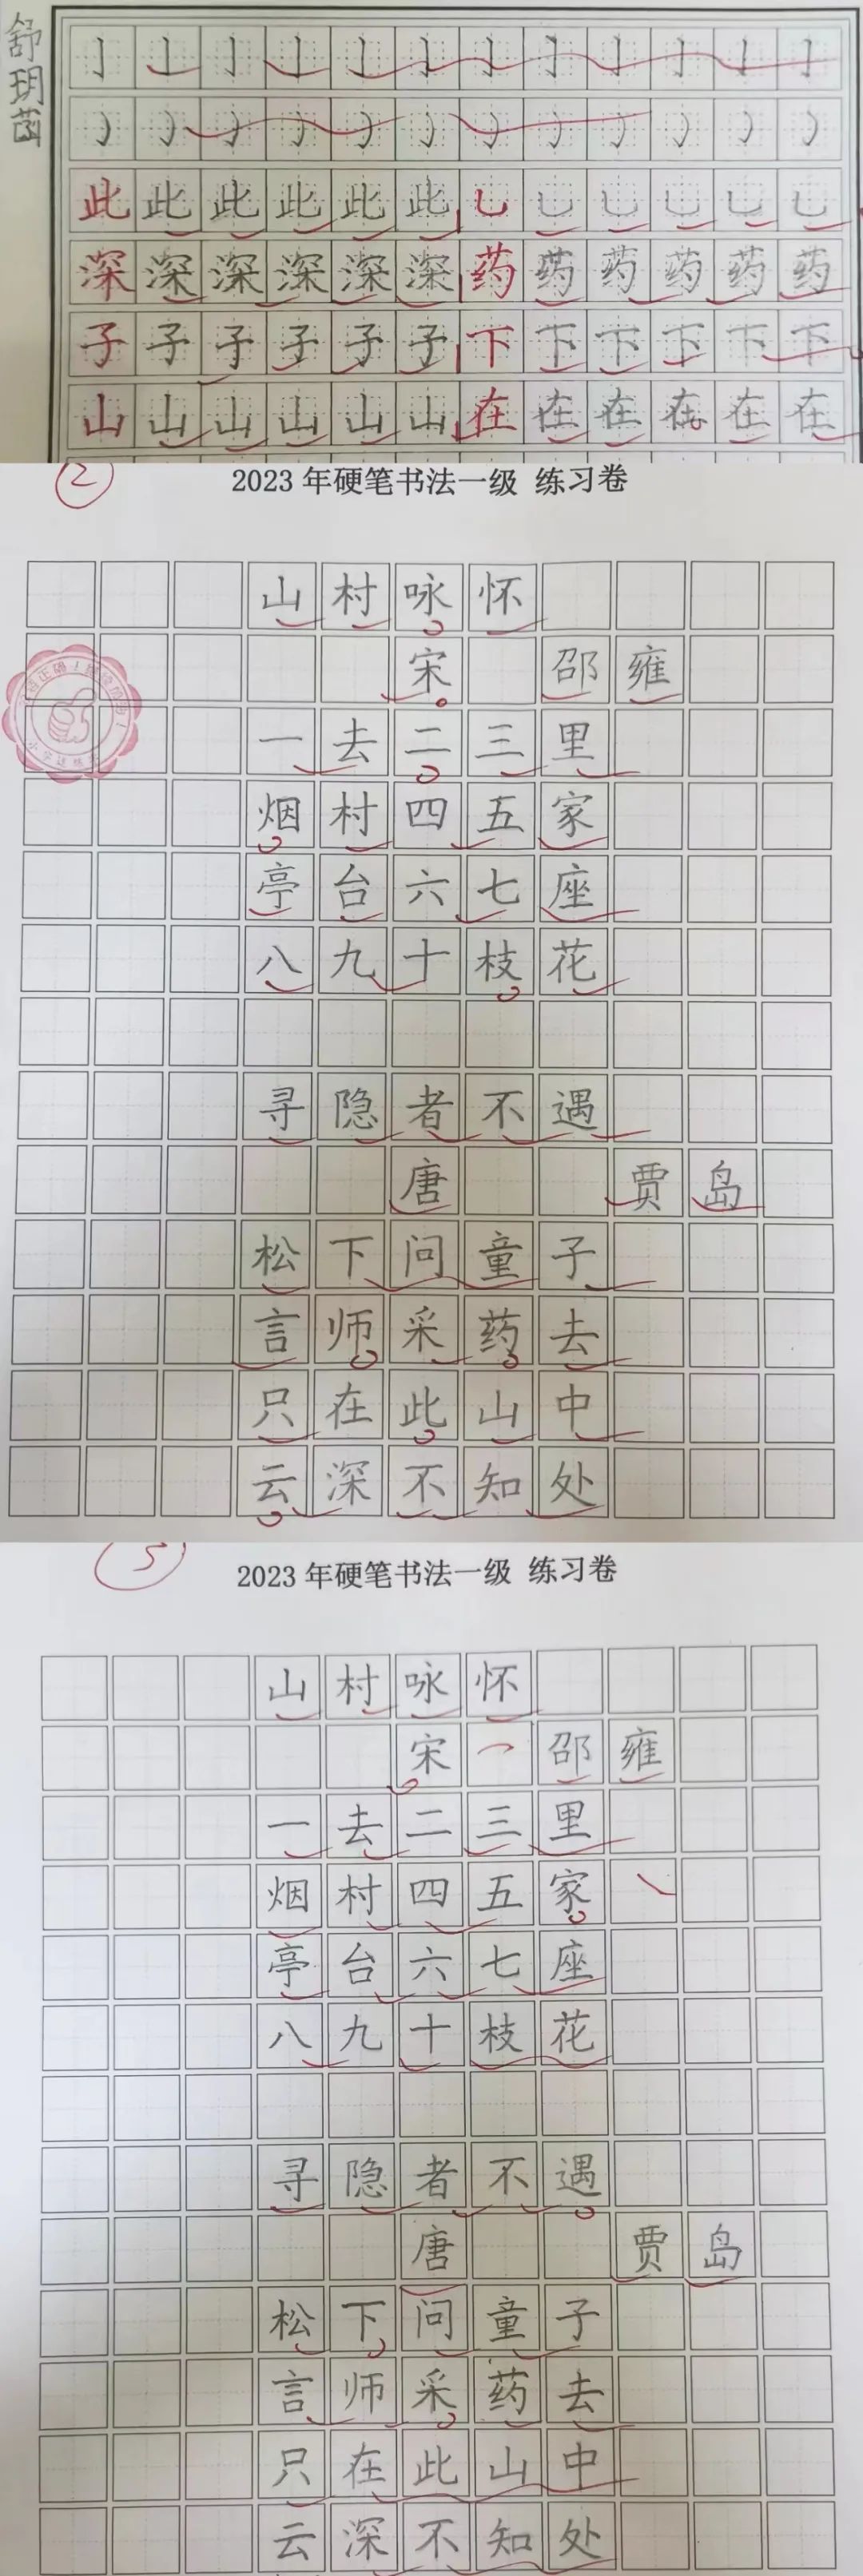 舒玥菡
亅亅亅亅亅亅亅亅亅亅亅亅
此此此此此此乚乚乚乚乚乚
深深深深深深药药药药药药
子子子子子子下下下下下下
山山山山山山在在在在在在
2
2023年硬笔书法一级 练习卷
山村咏怀
宋 邵雍
一去二三里
烟村四五家
亭台六七座
八九十枝花
寻隐者不遇
唐 贾岛
松下问童子
言师采药去
只在此山中
云深不知处
3
2023年硬笔书法一级 练习卷
山村咏怀
宋 邵雍
一去二三里
烟村四五家
亭台六七座
八九十枝花
寻隐者不遇
唐 贾岛
松下问童子
言师采药去
只在此山中
云深不知处